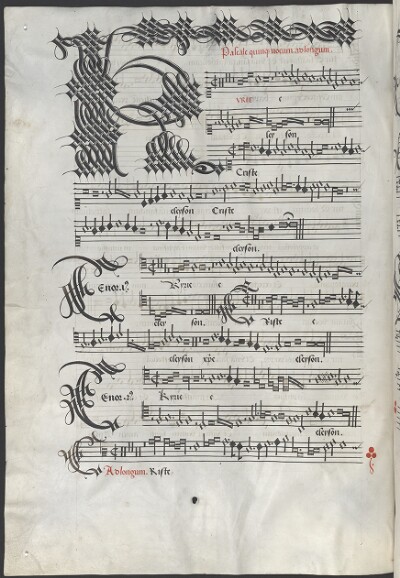 Paschale quinque vocum. ad longum.
yrie e
ler son
Criste
elerson Criste
elerson.
Tenor.1us Kyrie e
eler son. Criste e
elerson xpe elerson.
Tenor.2us Kyrie e
elerson.
Ad longum. Kriste.